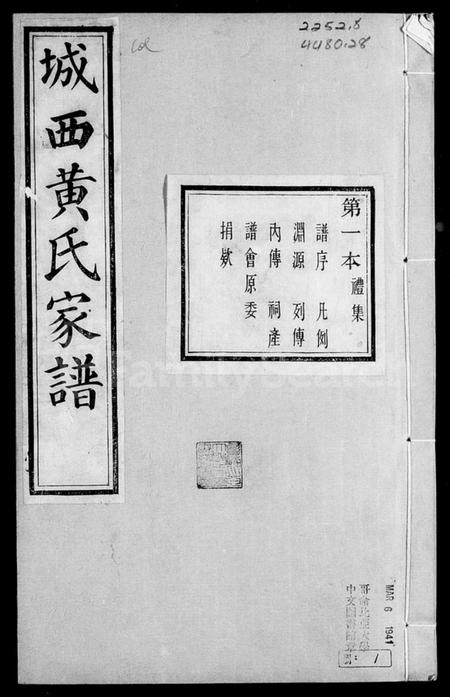 2252.8
4480.28
Col
城西黄氏家譜
第一本禮集
譜序 凡例
淵源 列傳
內傳 祠產
譜會原委
捐欵
FamilySearch
哥倫比亞大學
中文圖書館章
MAR 6 1941
1